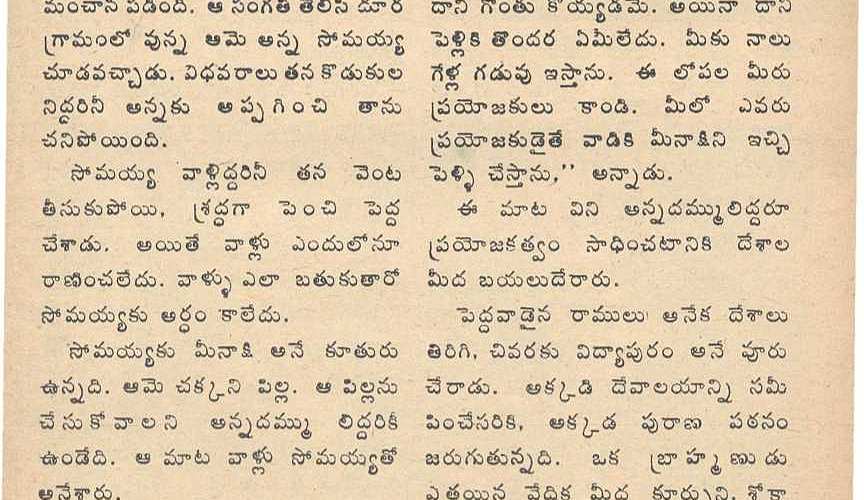 మంచాన పడింది. ఆ సంగతి తెలిసి దూర
గ్రామంలో వున్న ఆమె అన్న సోమయ్య
చూడవచ్చాడు. విధవరాలు తన కొడుకుల
నిద్దరినీ అన్నకు అప్పగించి తాను
చనిపోయింది.
సోమయ్య వాళ్లిద్దరినీ తన వెంట
తీసుకుపోయి, శ్రద్ధగా పెంచి పెద్ద
చేశాడు. అయితే వాళ్లు ఎందులోనూ
రాణించలేదు. వాళ్ళు ఎలా బతుకుతారో
సోమయ్యకు అర్ధం కాలేదు.
సోమయ్యకు మీనాక్షి అనే కూతురు
ఉన్నది. ఆమె చక్కని పిల్ల. ఆ పిల్లను
చేసుకోవాలని అన్నదమ్ము లిద్దరికీ
ఉండేది. ఆ మాట వాళ్లు సోమయ్యతో
అనేశారు.
దాని గొంతు కొయ్యడమే. అయినా దాని
పెళ్లికి తొందర ఏమీలేదు. మీకు నాలు
గేళ్ల గడువు ఇస్తాను. ఈ లోపల మీరు
ప్రయోజకులు కాండి. మీలో ఎవరు
ప్రయోజకుడైతే వాడికి మీనాక్షిని ఇచ్చి
పెళ్ళి చేస్తాను,'' అన్నాడు.
ఈ మాట విని అన్నదమ్ములిద్దరూ
ప్రయోజకత్వం సాధించటానికి దేశాల
మీద బయలుదేరారు.
పెద్దవాడైన రాములు అనేక దేశాలు
తిరిగి, చివరకు విద్యాపురం అనే వూరు
చేరాడు. అక్కడి దేవాలయాన్ని సమీ
పించేసరికి, అక్కడ పురాణ పఠనం
జరుగుతున్నది. ఒక బ్రాహ్మణుడు
ఎత్తయిన వేదిక మీద కూర్చుని శ్లోకా